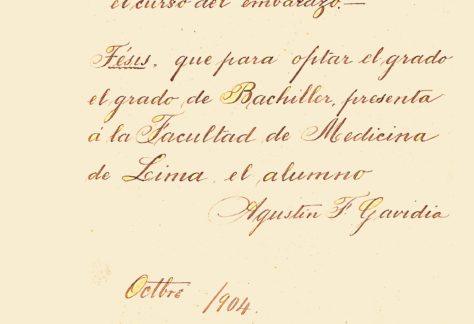 el curso del embarazo.—
Tésis, que para optar el grado
el grado de Bachiller, presenta
á la Facultad de Medicina
de Lima el alumno
Agustín F Gavidia
Octbre /904.